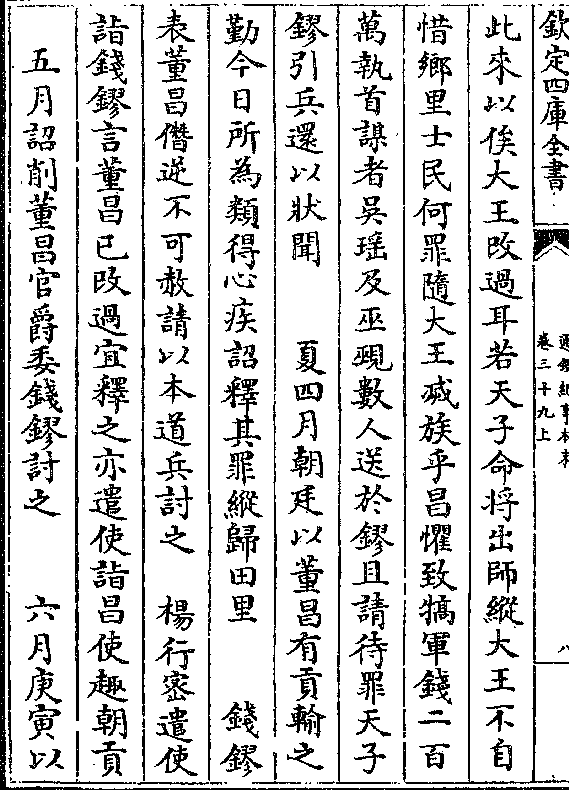 欽定四庫全書
通鑑紀事本末
卷三十九上
八
此來以俟大王改過耳若天子命將出師縱大王不自
惜鄉里士民何罪隨大王㓕族乎昌懼致犒軍錢二百
萬執首謀者吳瑶及巫覡數人送於鏐且請待罪天子
鏐引兵還以狀聞　夏四月朝廷以董昌有貢輸之
勤今日所為類得心疾詔釋其罪縱歸田里　錢鏐
表董昌僭逆不可赦請以本道兵討之　楊行密遣使
詣錢鏐言董昌已改過宜釋之亦遣使詣昌使趣朝貢
五月詔削董昌官爵委錢鏐討之　六月庚寅以